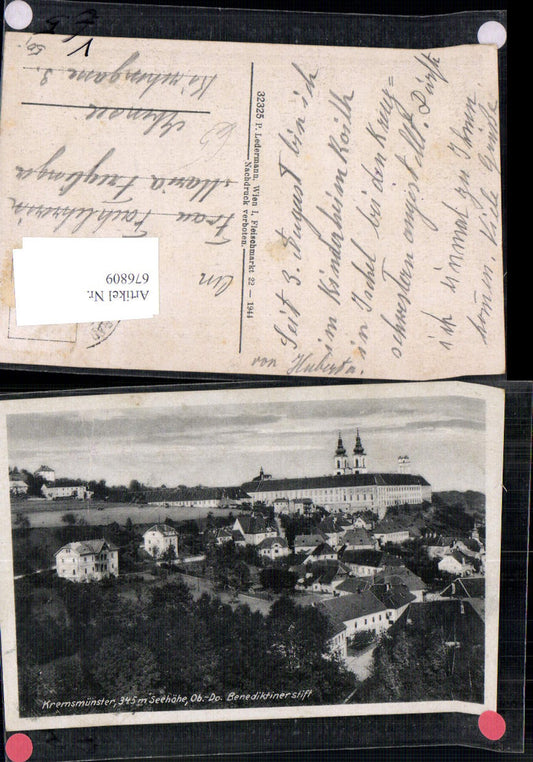 Seit 3. August bin ich
im Kinderheim Roith
in Ischl bei den Kreuz=
schwestern angestellt. Dürfte
ich einmal zu Ihnen
kommen. Viele Grüße
von Huberta.
32325 P. Ledermann, Wien I, Fleischmarkt 22 — 1944
Nachdruck verboten.
An
Frau
Maria
3.
Artikel Nr.
676809
Kremsmünster, 345 m Seehöhe, Ob.-Do. Benediktinerstift